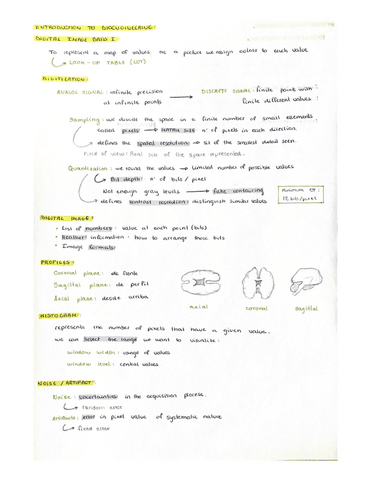 INTRODUCTION TO BIOENGINEERING
DIGITAL IMAGE DATA I
To represent a map of values as a picture we assign colors to each value
LOOK-UP TABLE (LUT)
DIGITIZATION
ANALOG SIGNAL: infinite precision at infinite points
DISCRETE SIGNAL: finite point with finite different values
Sampling: we divide the space in a finite number of small elements
called pixels → MATRIX SIZE nº of pixels in each direction.
defines the spatial resolution → size of the smallest detail seen.
Field of view: Real size of the space represented.
Quantization: we round the values → Limited number of possible values
Bit depth: nº of bits / pixel
Not enough gray levels → false contouring
defines contrast resolution: distinguish similar values
MINIMUM OF: 12 bits/pixel
DIGITAL IMAGE:
• Lots of numbers: value at each point (bits)
• Header information: how to arrange those bits
• Image formats
PROFILES:
Coronal plane: de frente
Sagittal plane: de perfil
Axial plane: desde arriba
axial
coronal
sagittal
HISTOGRAM:
represents the number of pixels that have a given value.
we can select the range we want to visualize:
window width: range of values
window level: central values
NOISE / ARTIFACT
Noise: uncertainties in the acquisition process.
random error
Artifacts: error in pixel value of systematic nature
fixed error